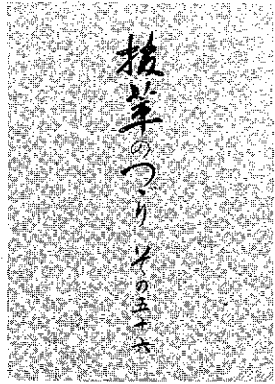 抜萃のつゞり その五十六